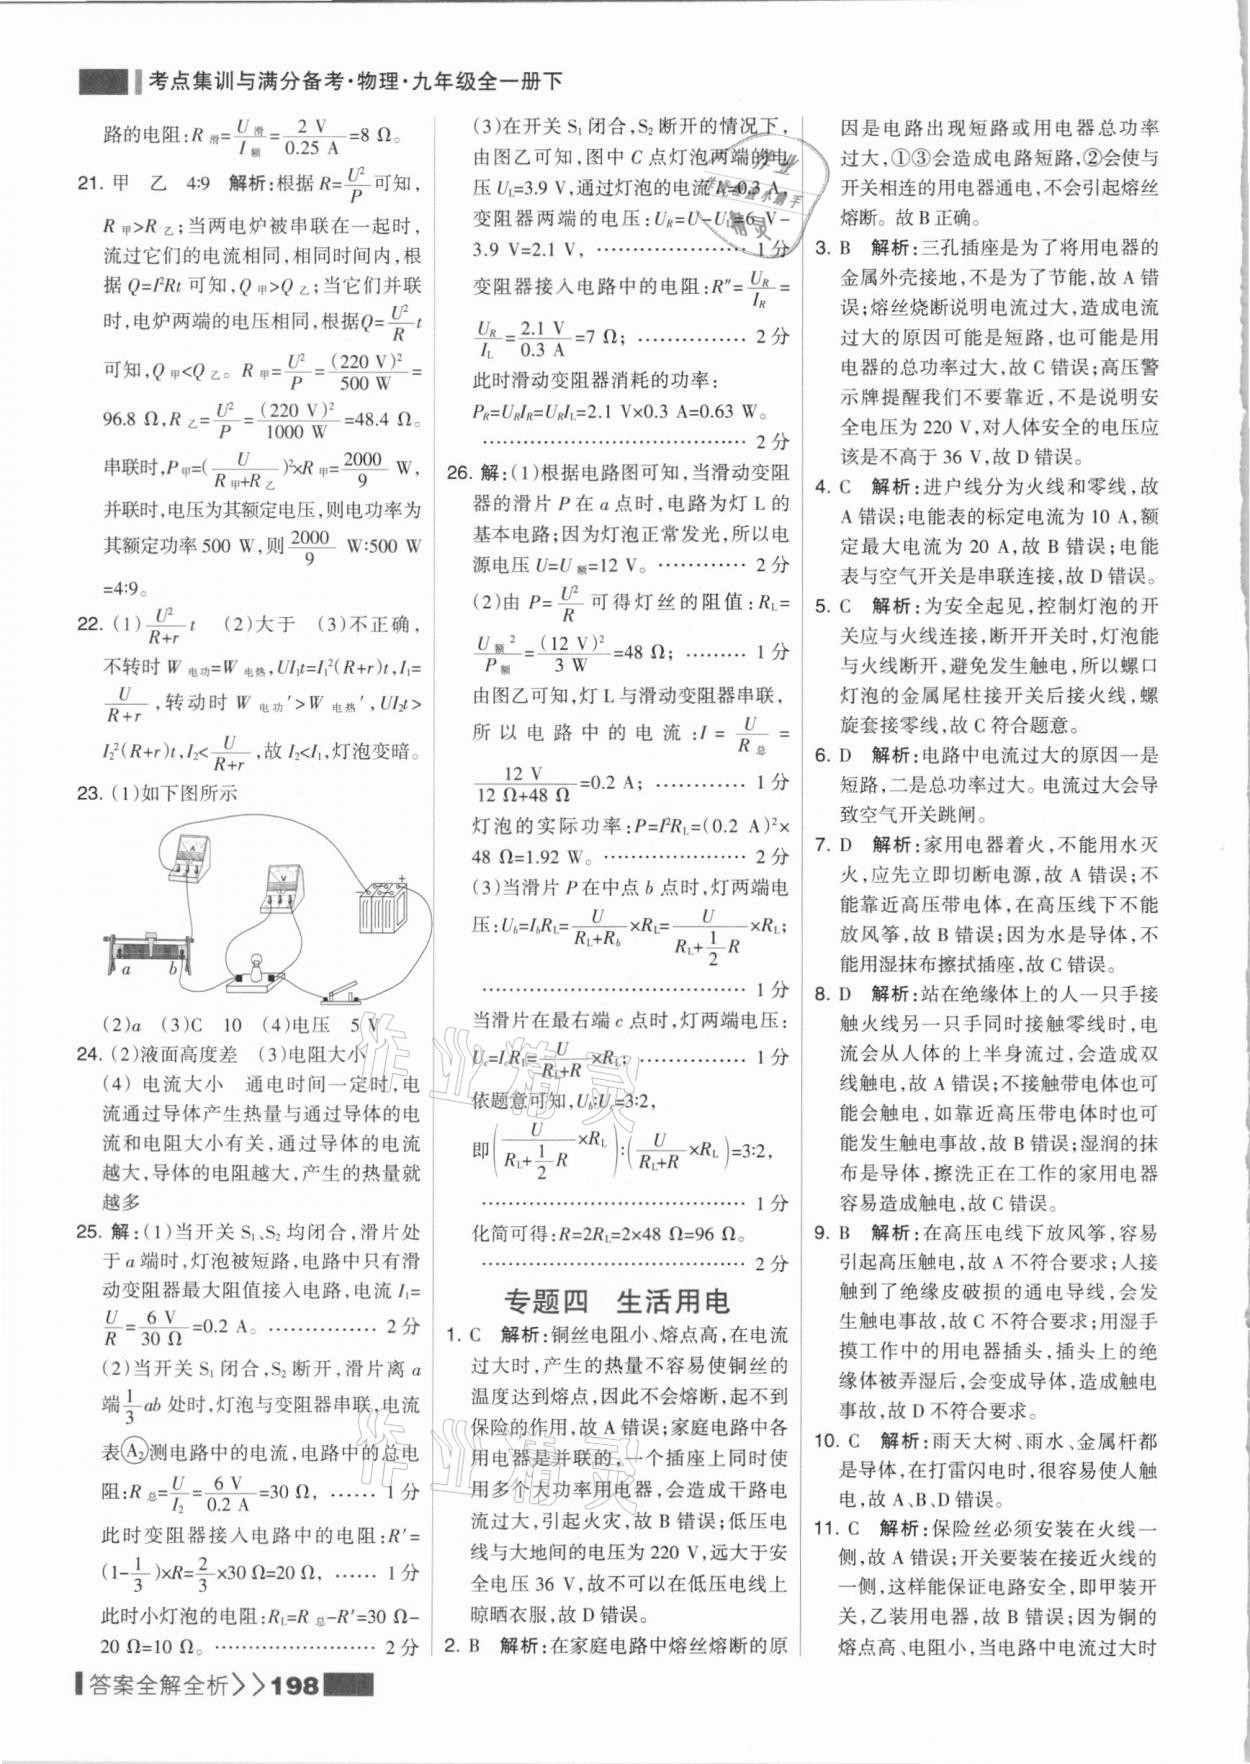 考点集训与满分备考·物理·九年级全一册下
路的电阻:R滑=U滑/I额=2 V/0.25 A=8 Ω。
21. 甲 乙 4∶9 解析:根据R=U²/P可知,
R甲>R乙;当两电炉被串联在一起时,
流过它们的电流相同,相同时间内,根
据Q=I²Rt可知,Q甲>Q乙;当它们并联
时,电炉两端的电压相同,根据Q=U²/R t
可知,Q甲<Q乙。R甲=U²/P=(220 V)²/500 W=
96.8 Ω,R乙=U²/P=(220 V)²/1000 W=48.4 Ω。
串联时,P甲=(U/(R甲+R乙))²×R甲=2000/9 W,
并联时,电压为其额定电压,则电功率为
其额定功率500 W,则2000/9 W∶500 W
=4∶9。
22. (1)U²/(R+r) t (2)大于 (3)不正确,
不转时W电功=W电热,UI₁t=I₁²(R+r)t,I₁=
U/(R+r),转动时W电功′>W电热′,UI₂t>
I₂²(R+r)t,I₂<U/(R+r),故I₂<I₁,灯泡变暗。
23. (1)如下图所示
A
V
+
a
b
(2)a (3)C 10 (4)电压 5 V
24. (2)液面高度差 (3)电阻大小
(4) 电流大小 通电时间一定时,电
流通过导体产生热量与通过导体的电
流和电阻大小有关,通过导体的电流
越大,导体的电阻越大,产生的热量就
越多
25. 解:(1)当开关S₁、S₂均闭合,滑片处
于a端时,灯泡被短路,电路中只有滑
动变阻器最大阻值接入电路,电流I₁=
U/R=6 V/30 Ω=0.2 A。…………… 2分
(2)当开关S₁闭合,S₂断开,滑片离a
端1/3ab处时,灯泡与变阻器串联,电流
表A₂测电路中的电流,电路中的总电
阻:R总=U/I₂=6 V/0.2 A=30 Ω, …… 1分
此时变阻器接入电路中的电阻:R′=
(1-1/3)×R=2/3×30 Ω=20 Ω, …… 1分
此时小灯泡的电阻:R_L=R总-R′=30 Ω-
20 Ω=10 Ω。 …………………… 2分
(3)在开关S₁闭合,S₂断开的情况下,
由图乙可知,图中C点灯泡两端的电
压U_L=3.9 V,通过灯泡的电流I_L=0.3 A,
变阻器两端的电压:U_R=U-U_L=6 V-
3.9 V=2.1 V, …………………… 1分
变阻器接入电路中的电阻:R″=U_R/I_R=
U_R/I_L=2.1 V/0.3 A=7 Ω; …………… 2分
此时滑动变阻器消耗的功率:
P_R=U_RI_R=U_RI_L=2.1 V×0.3 A=0.63 W。
………………………………… 2分
26. 解:(1)根据电路图可知,当滑动变阻
器的滑片P在a点时,电路为灯L的
基本电路;因为灯泡正常发光,所以电
源电压U=U额=12 V。 ………… 2分
(2)由P=U²/R可得灯丝的阻值:R_L=
U额²/P额=(12 V)²/3 W=48 Ω; ……… 1分
由图乙可知,灯L与滑动变阻器串联,
所以电路中的电流:I=U/R总=
12 V/(12 Ω+48 Ω)=0.2 A; ………… 1分
灯泡的实际功率:P=I²R_L=(0.2 A)²×
48 Ω=1.92 W。 ………………… 2分
(3)当滑片P在中点b点时,灯两端电
压:U_b=I_bR_L=U/(R_L+R_b)×R_L=U/(R_L+1/2R)×R_L;
………………………………… 1分
当滑片在最右端c点时,灯两端电压:
U_c=I_cR_L=U/(R_L+R)×R_L; …………… 1分
依题意可知,U_b∶U_c=3∶2,
即(U/(R_L+1/2R)×R_L)∶(U/(R_L+R)×R_L)=3∶2,
………………………………… 1分
化简可得:R=2R_L=2×48 Ω=96 Ω。
………………………………… 2分
专题四 生活用电
1. C 解析:铜丝电阻小、熔点高,在电流
过大时,产生的热量不容易使铜丝的
温度达到熔点,因此不会熔断,起不到
保险的作用,故A错误;家庭电路中各
用电器是并联的,一个插座上同时使
用多个大功率用电器,会造成干路电
流过大,引起火灾,故B错误;低压电
线与大地间的电压为220 V,远大于安
全电压36 V,故不可以在低压电线上
晾晒衣服,故D错误。
2. B 解析:在家庭电路中熔丝熔断的原
因是电路出现短路或用电器总功率
过大,①③会造成电路短路,②会使与
开关相连的用电器通电,不会引起熔丝
熔断。故B正确。
3. B 解析:三孔插座是为了将用电器的
金属外壳接地,不是为了节能,故A错
误;熔丝烧断说明电流过大,造成电流
过大的原因可能是短路,也可能是用
电器的总功率过大,故C错误;高压警
示牌提醒我们不要靠近,不是说明安
全电压为220 V,对人体安全的电压应
该是不高于36 V,故D错误。
4. C 解析:进户线分为火线和零线,故
A错误;电能表的标定电流为10 A,额
定最大电流为20 A,故B错误;电能
表与空气开关是串联连接,故D错误。
5. C 解析:为安全起见,控制灯泡的开
关应与火线连接,断开开关时,灯泡能
与火线断开,避免发生触电,所以螺口
灯泡的金属尾柱接开关后接火线,螺
旋套接零线,故C符合题意。
6. D 解析:电路中电流过大的原因一是
短路,二是总功率过大。电流过大会导
致空气开关跳闸。
7. D 解析:家用电器着火,不能用水灭
火,应先立即切断电源,故A错误;不
能靠近高压带电体,在高压线下不能
放风筝,故B错误;因为水是导体,不
能用湿抹布擦拭插座,故C错误。
8. D 解析:站在绝缘体上的人一只手接
触火线另一只手同时接触零线时,电
流会从人体的上半身流过,会造成双
线触电,故A错误;不接触带电体也可
能会触电,如靠近高压带电体时也可
能发生触电事故,故B错误;湿润的抹
布是导体,擦洗正在工作的家用电器
容易造成触电,故C错误。
9. B 解析:在高压电线下放风筝,容易
引起高压触电,故A不符合要求;人接
触到了绝缘皮破损的通电导线,会发
生触电事故,故C不符合要求;用湿手
摸工作中的用电器插头,插头上的绝
缘体被弄湿后,会变成导体,造成触电
事故,故D不符合要求。
10. C 解析:雨天大树、雨水、金属杆都
是导体,在打雷闪电时,很容易使人触
电,故A、B、D错误。
11. C 解析:保险丝必须安装在火线一
侧,故A错误;开关要装在接近火线的
一侧,这样能保证电路安全,即甲装开
关,乙装用电器,故B错误;因为铜的
熔点高、电阻小,当电路中电流过大时
答案全解全析>>198
作业精灵
作业精灵